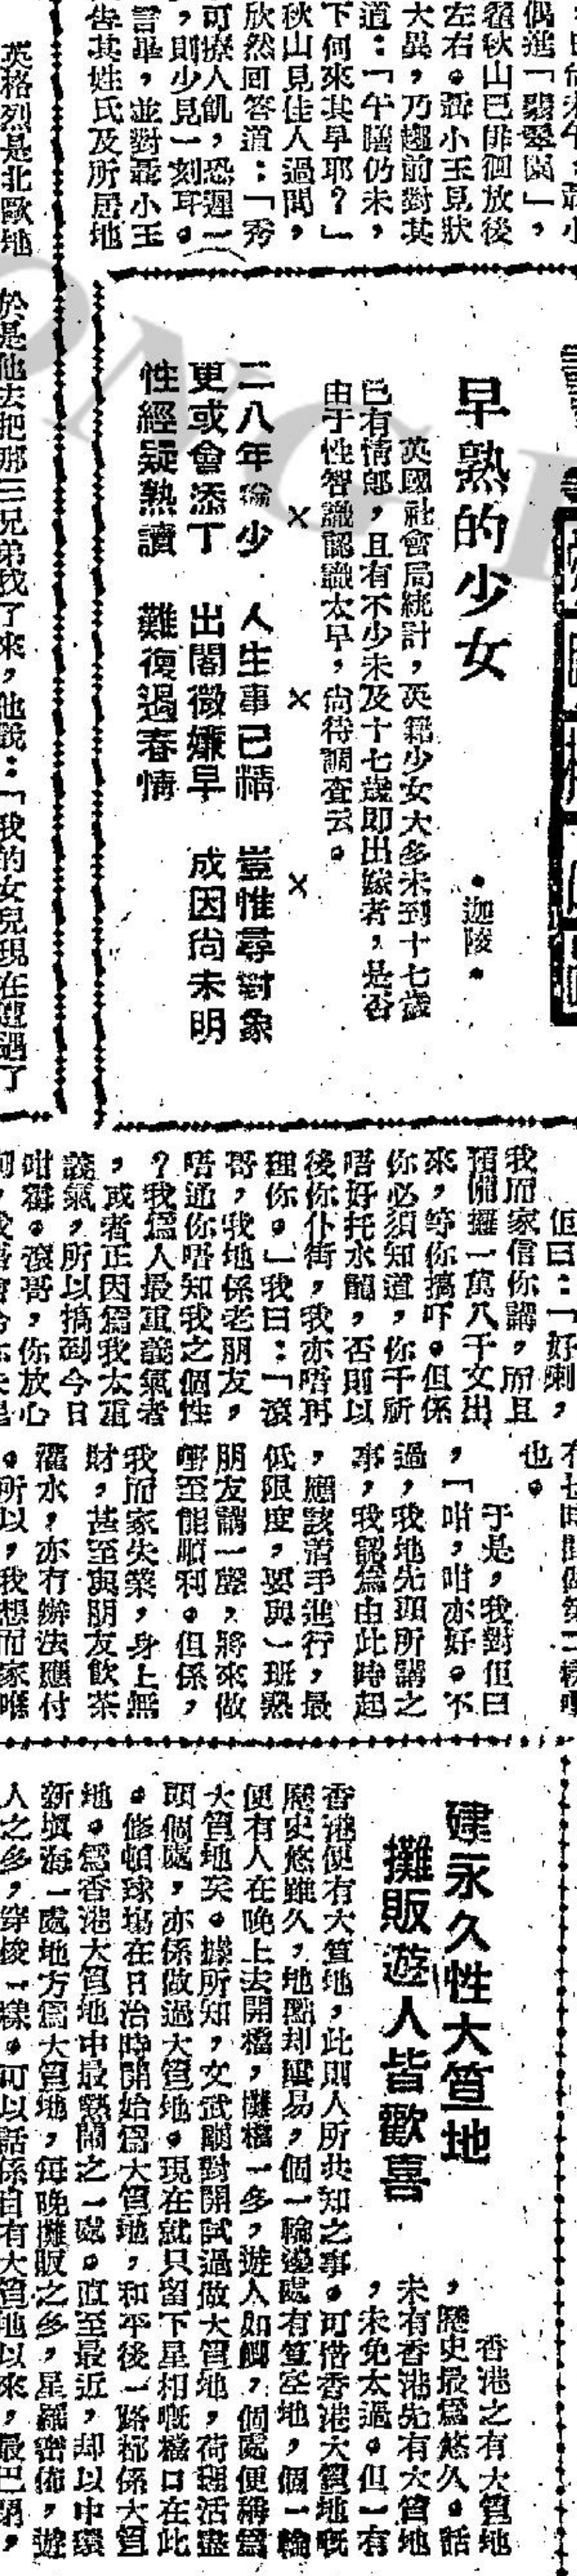 偶進「翡翠園」，
秋山已徘徊放後
左右。聶小玉見狀
大異，乃趨前對其
道：「午膳仍未，
下何來其早耶？」
秋山見佳人過問，
欣然回答道：「秀
可療人飢，恐遲一
，則少見一刻耳。
言畢，並對聶小玉
告其姓氏及所居地
早熟的少女
•迦陵•
英國社會局統計，英籍少女大多未到十七歲
已有情郎，且有不少未及十七歲即出嫁者，是否
由于性智識認識太早，尚待調查云。
× × ×
二八年 少 人生事已精 豈惟尋對象
更或會添丁 出閣微嫌早 成因尚未明
性經疑熟讀 難復遏春情
英格烈是北歐地
於是他去把那三兄弟找了來，他說：「我的女兒現在遭遇了
佢曰：「好喇，
我而家信你講，而且
預備攞一萬八千文出
來，等你搞吓。但係
你必須知道，你千祈
唔好托水龍，否則以
後你仆街，我亦唔再
理你。」我曰：「滾
哥，我地係老朋友，
唔通你唔知我之個性
？我爲人最重義氣者
，或者正因爲我太重
義氣，所以搞到今日
咁 。滾哥，你放心
也。
于是，我對佢曰
，「咁，咁亦好。不
過，我地先頭所講之
事，我認爲由此時起
，應該着手進行，最
低限度，要與一班熟
朋友講一聲，將來做
嘢至能順利。但係，
我而家失業，身上無
財，甚至與朋友飲茶
灌水，亦冇辦法應付
。所以，我想而家喺
建永久性大笪地
攤販遊人皆歡喜
香港之有大笪地
，歷史最爲悠久。話
未有香港先有大笪地
，未免太過。但一有
香港便有大笪地，此則人所共知之事。可惜香港大笪地嘅
歷史悠雖久，地點却屢易，個一輪邊處有笪空地，個一輪
便有人在晚上去開檔，攤檔一多，遊人如鯽，個處便稱爲
大笪地矣。據所知，文武廟對開試過做大笪地，荷理活盡
頭個處，亦係做過大笪地。現在就只留下星相嘅檔口在此
。修頓球場在日治時開始爲大笪地，和平後一路都係大笪
地。爲香港大笪地中最熱鬧之一處。直至最近，却以中環
新填海一處地方爲大笪地，每晚攤販之多，星羅密佈，遊
人之多，穿梭一樣。可以話係自有大笪地以來，最巴閉，